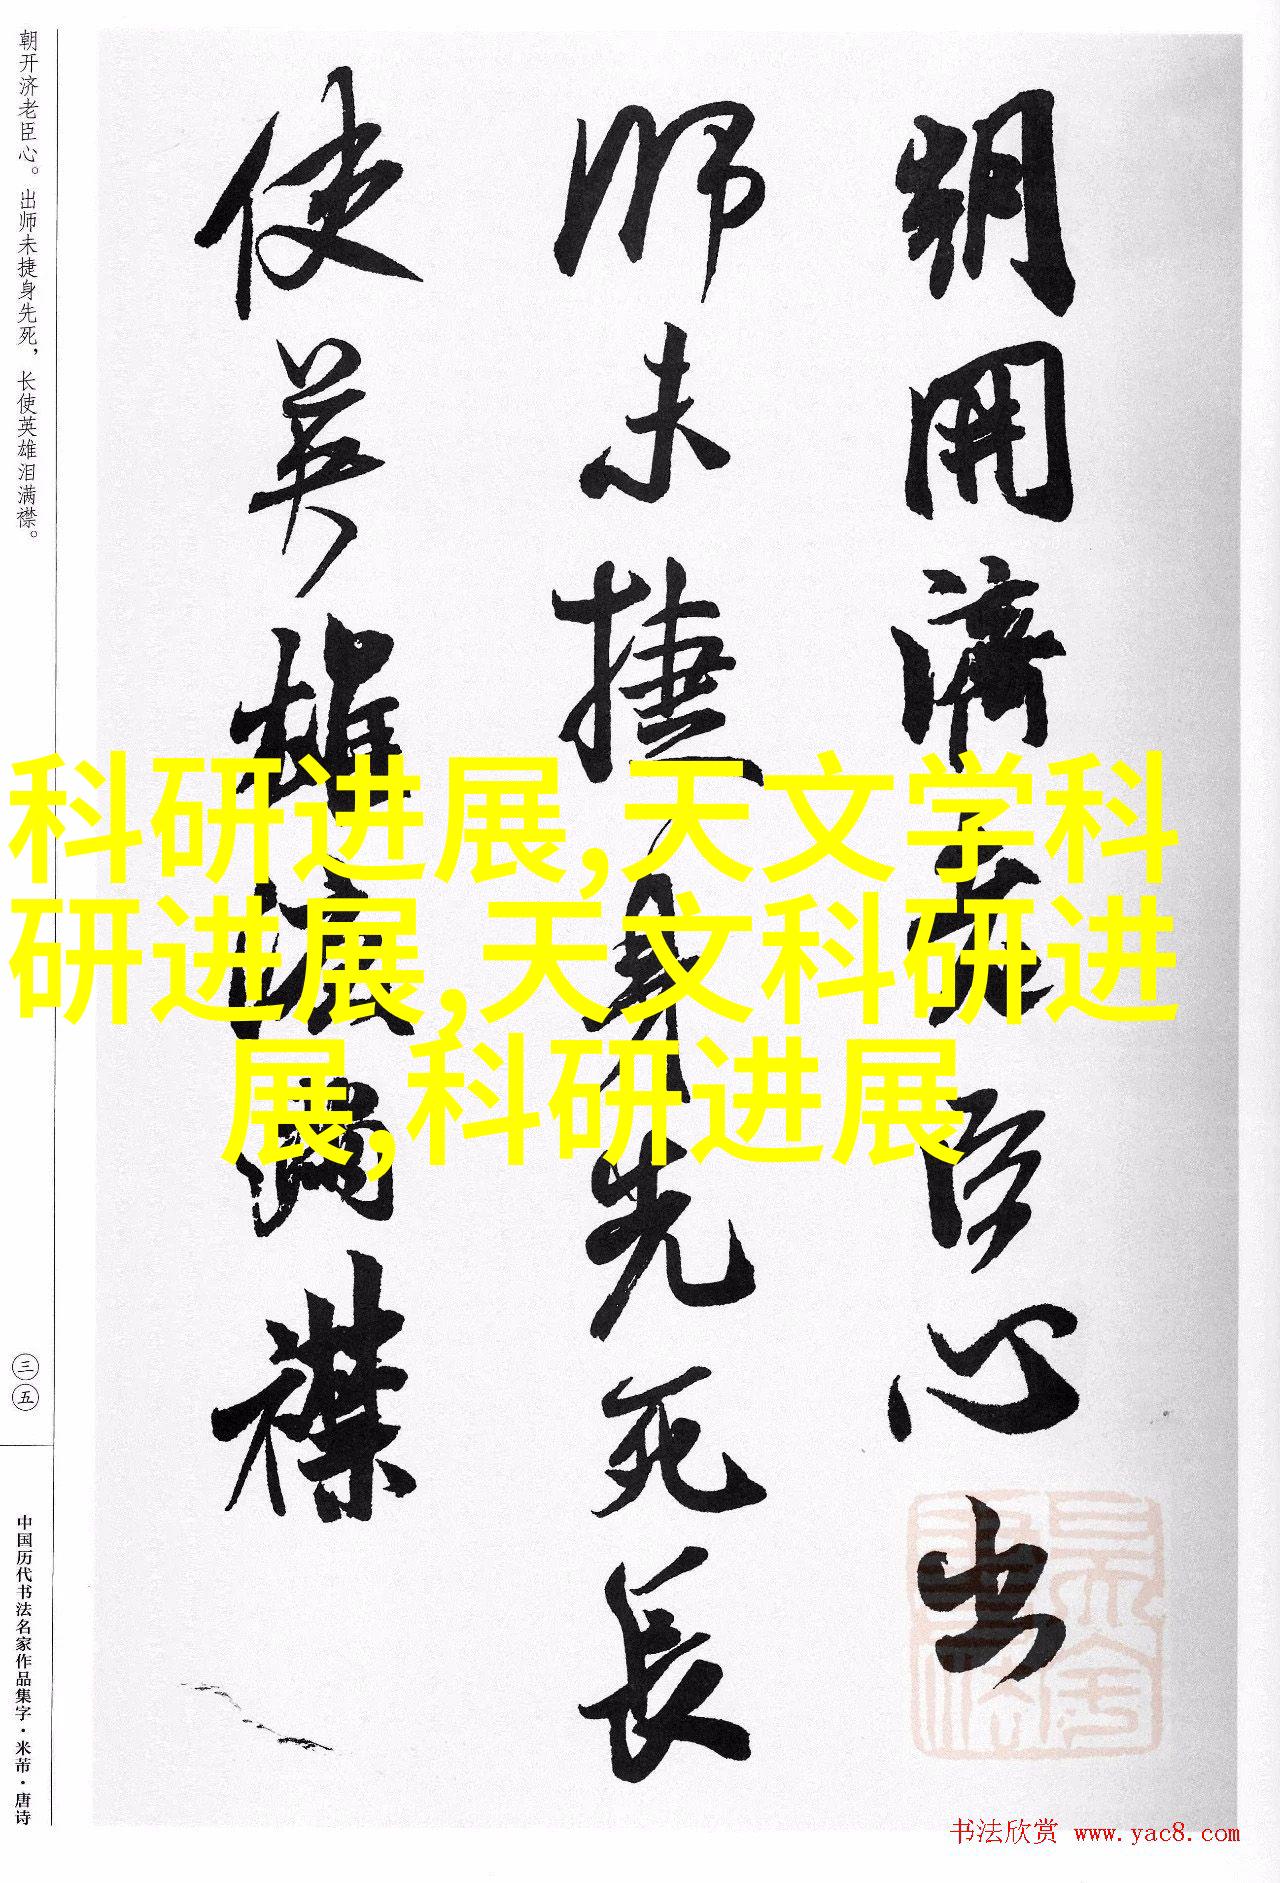 朝开济老臣心。出师未捷身先死，长使英雄泪满襟。
三五
中国历代书法名家作品集字·米芾·唐诗
朝開濟老臣心出
師未捷身先死長
使英雄淚滿襟
科研进展,天文学科
研进展,天文科研进
展,科研进展
书法欣赏 www.yac8.com